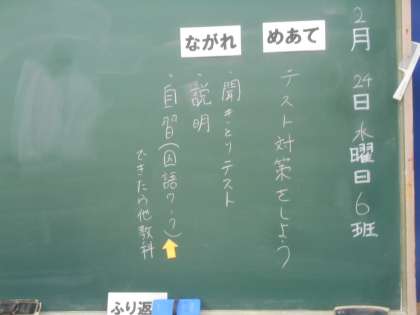 2月24日水曜日6班
めあて
テスト対策をしよう
ながれ
・聞きとりテスト
・説明
・自習(国語ワーク)
できたら他教科
ふり返